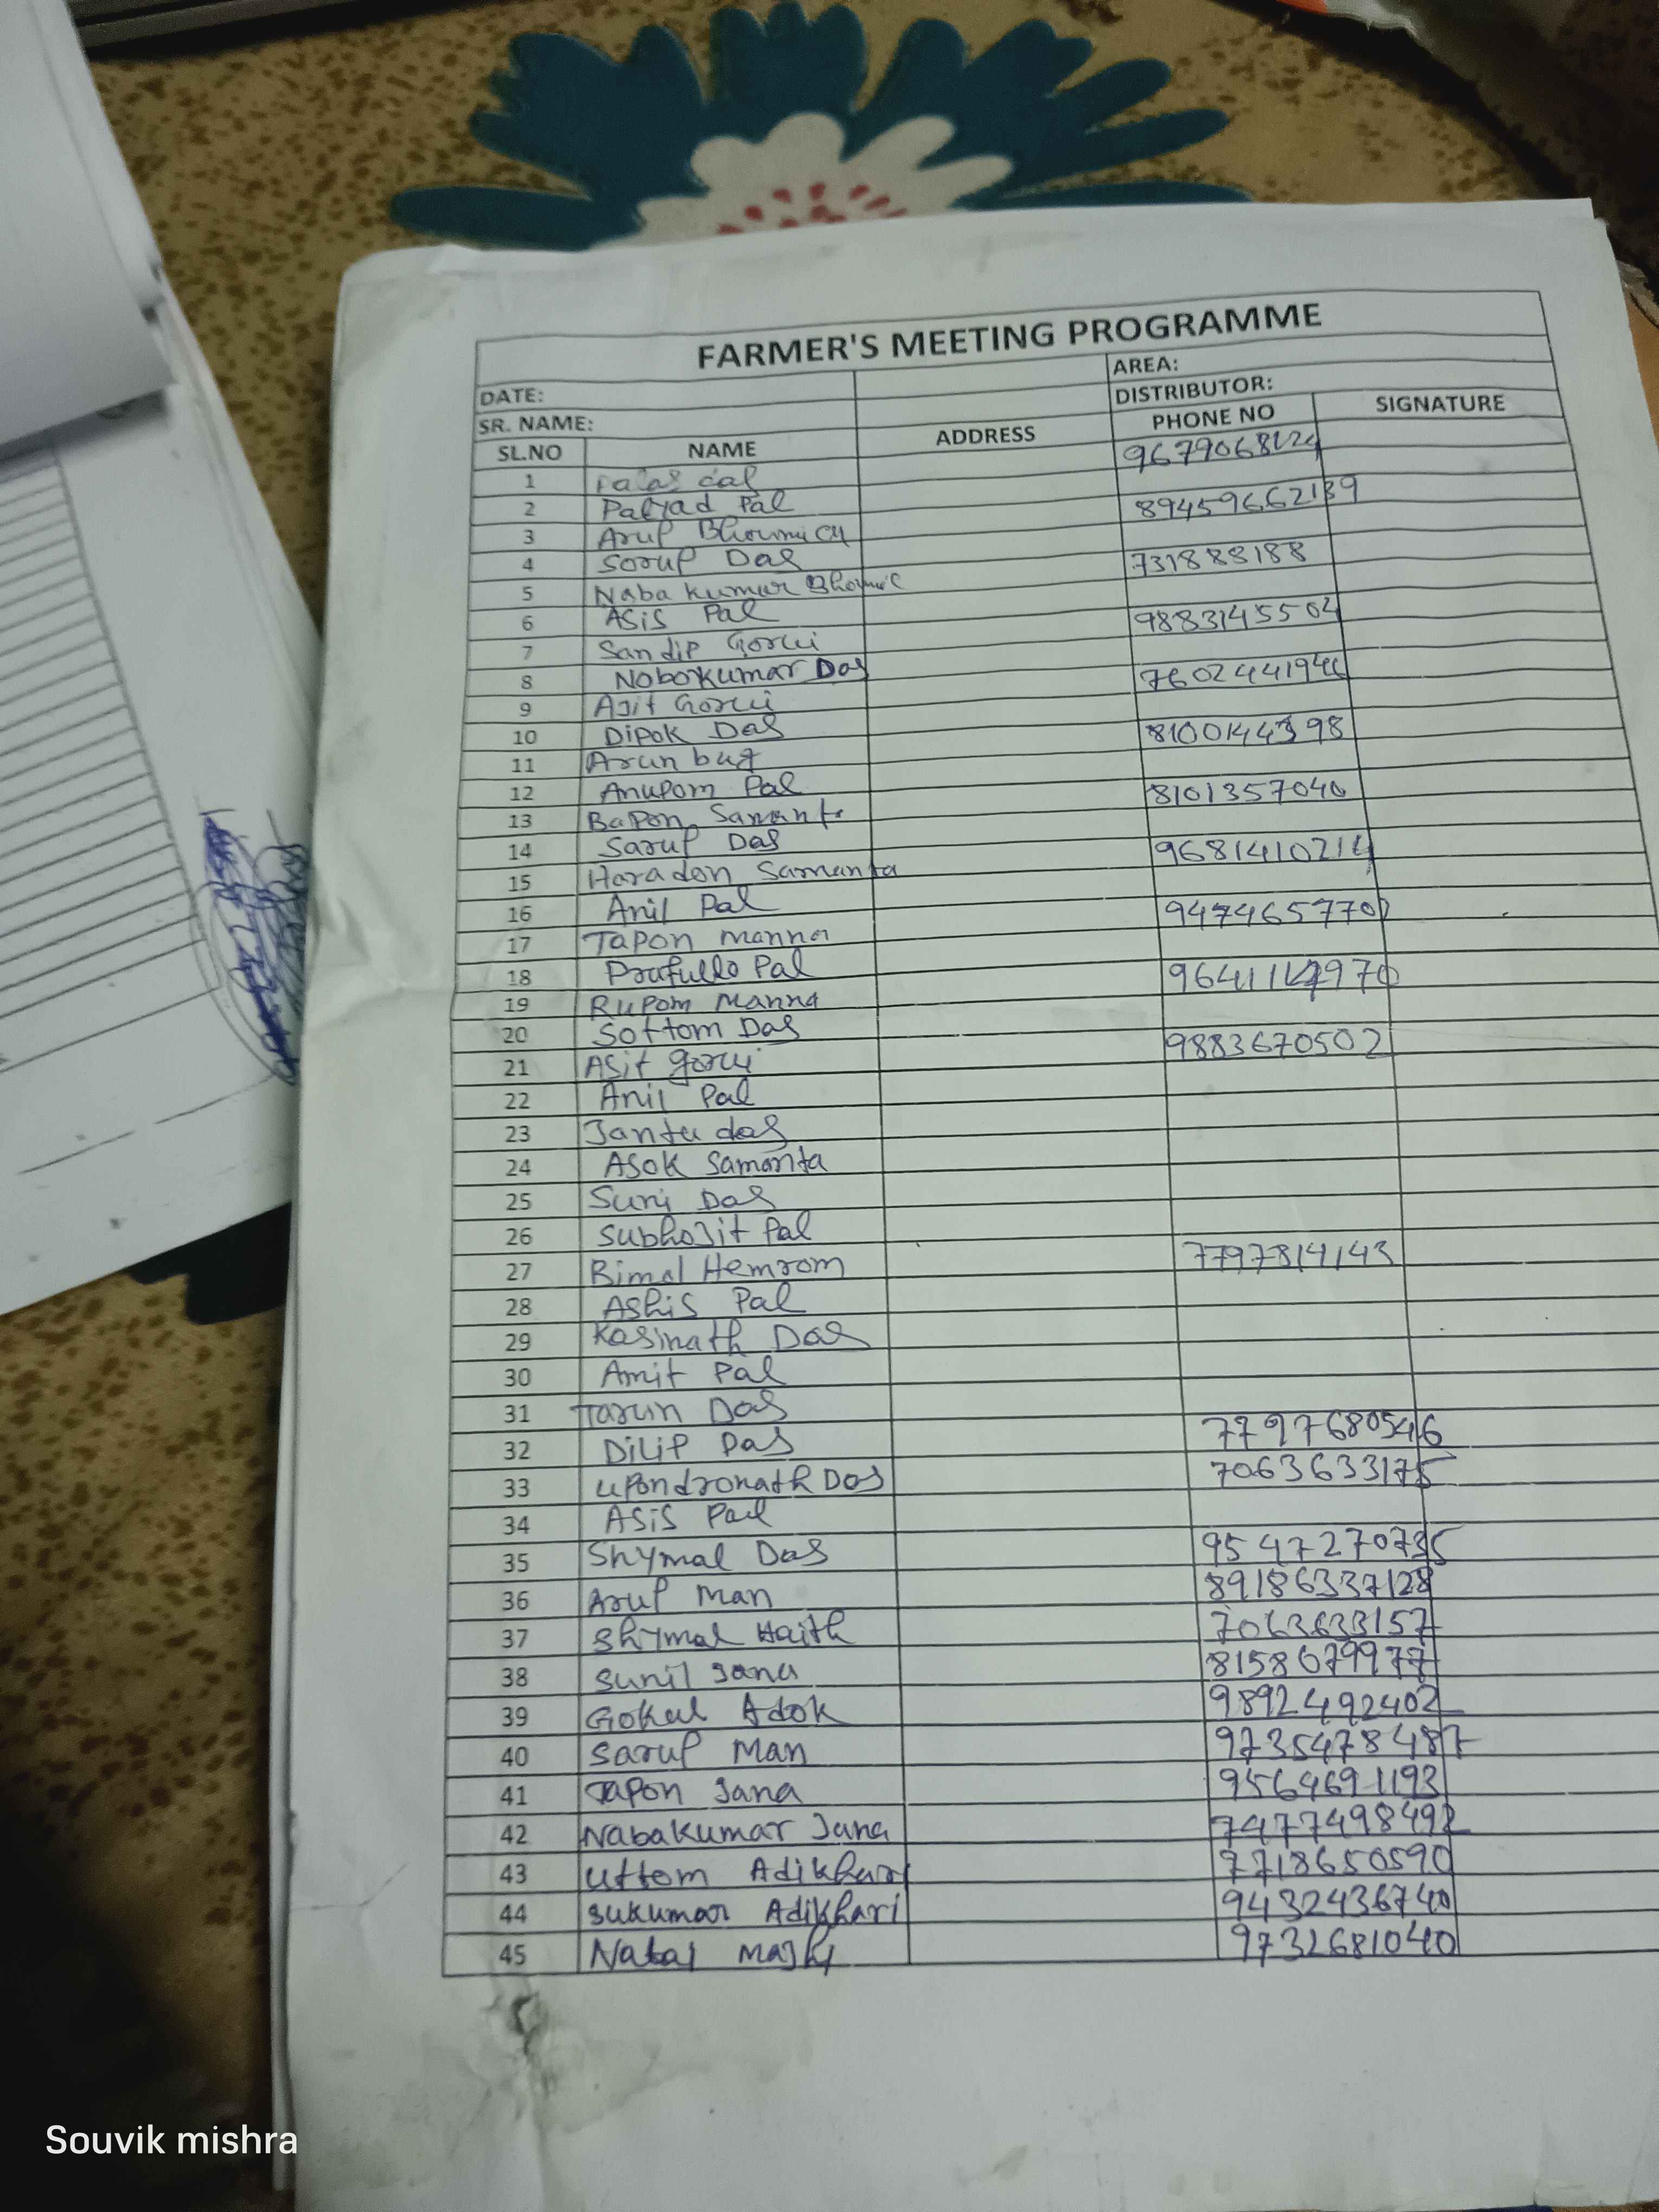 FARMER'S MEETING PROGRAMME
DATE: AREA:
SR. NAME: DISTRIBUTOR:
SL.NO NAME ADDRESS PHONE NO SIGNATURE
1
2 Pal 89459662139
3 Arup
4 Sorup Das 731883188
5 Naba kumar
6 Asis Pal 9883145504
7 Sandip Gorui
8 Nobokumar Das
9 Ajit Gorui
10 Dipok Das
11 Arun bug
12 Anupom Pal 8101357040
13 Bapon Samanta
14 Sarup Das 9681410214
15 Haradon Samanta
16 Anil Pal 9474657702
17 Tapon manna
18 Prafullo Pal
19 Rupom Manna
20 Sottom Das 9883670502
21 Asit gorui
22 Anil Pal
23 Jantu das
24 Asok Samanta
25 Das
26 Subhojit Pal
27 Bimal Hemrom 7797814143
28 Ashis Pal
29 Kasinath Das
30 Amit Pal
31 Tarun Das
32 Dilip Das 7797680546
33 upondronath Das 7063633175
34 Asis Pal
35 Shymal Das 9547270735
36 Arup Man 89186337128
37 Shymal Haith 7063633157
38 Sunil Jana 8158079977
39 Gokul Adok 9892492402
40 Sarup Man 9735478487
41 Tapon Jana 9564691193
42 Nabakumar Jana 7477498492
43 Uttom Adikhari 7718650590
44 Sukumar Adikhari 9432436740
45 9732681040
Souvik mishra